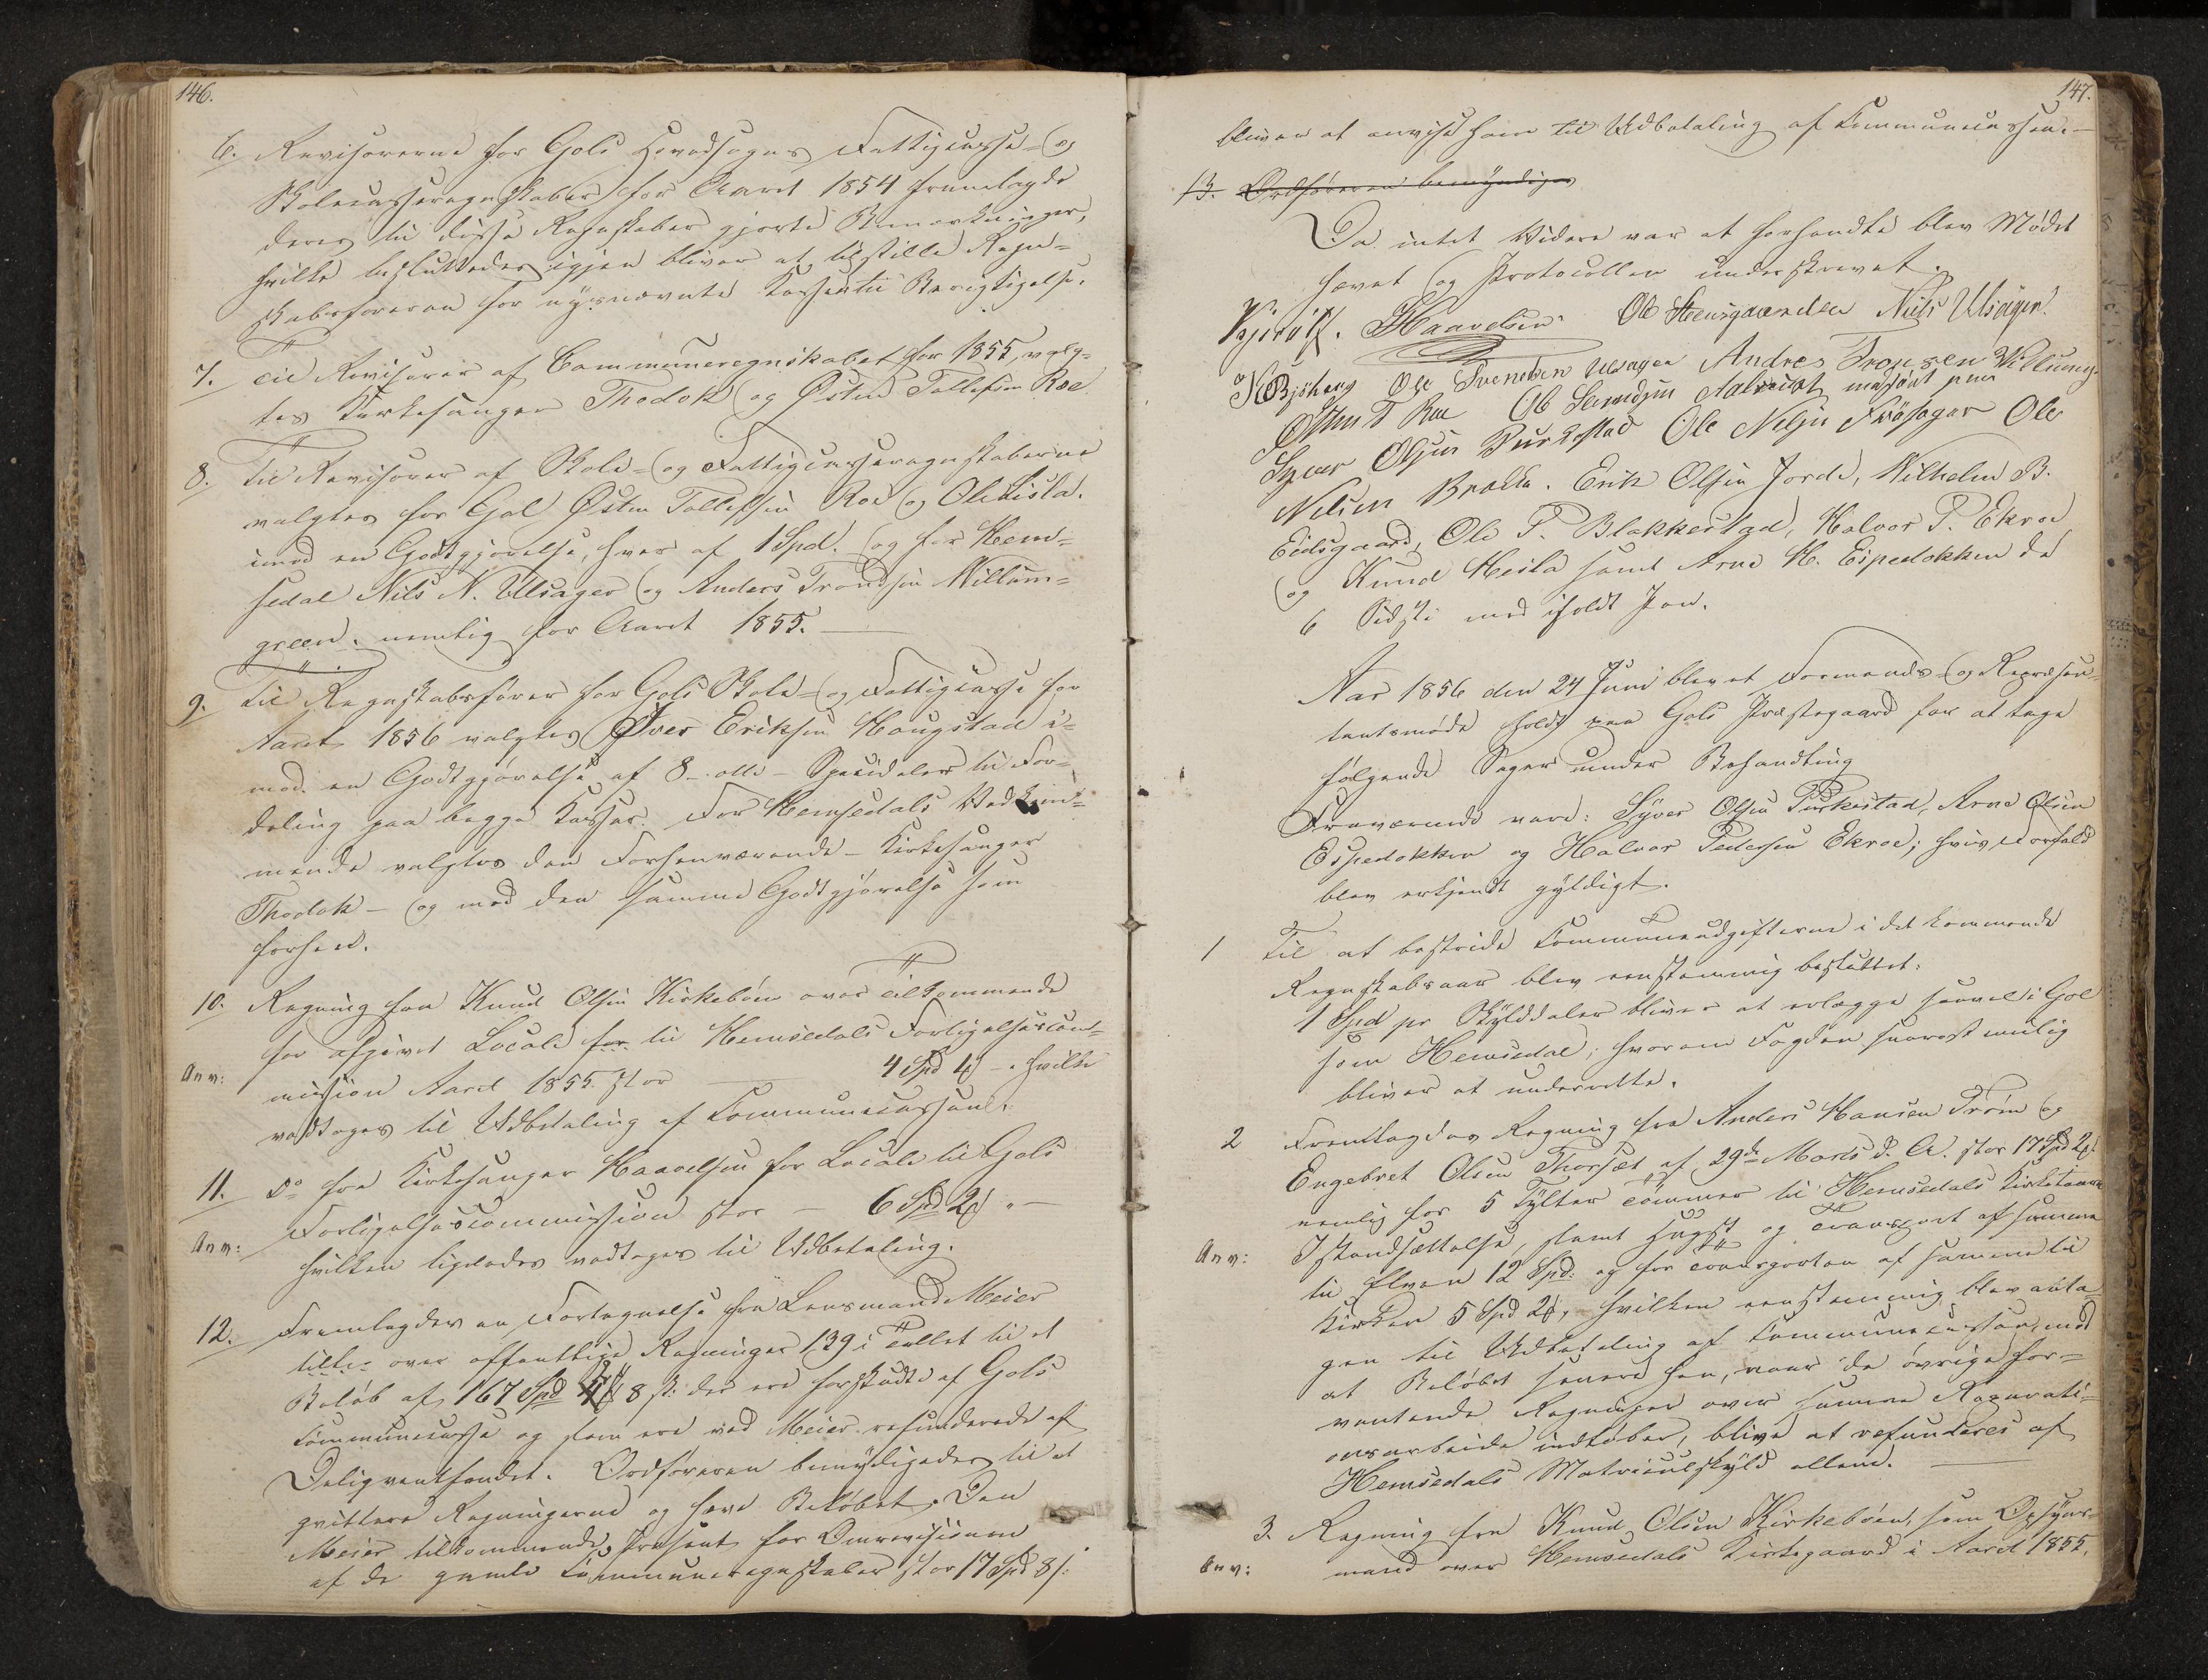 146.
6. Revisorerne for Gols Hovedsogns Fattigcasse- og
Skolecasseregnskaber for Aaret 1854 fremlagde
deres til disse Regnskaber gjorte Bemærkninger,
hvilke besluttedes igjen bliver at tilstille Regn-
skabsføreren for nysnævnte Kasser til Berigtigelse.
7. Til Revisorer af Communeregnskabet for 1855, valg-
tes Kirkesanger Thodok og Østen Tollefsen Roe
8. Til Revisorer af Skole- og Fattigcasseregnskaberne
valgtes for Gol Østen Tollefsen Roe og Ole Lisla.
imod en Godtgjørelse, hver af 1 Spd. og for Hem-
sedal Nils N. Ulsager og Anders Trondsen Villum-
green. nemlig for Aaret 1855.
9. Til Regnskabsfører for Gols Skole- og Fattigcasse for
Aaret 1856 valgtes Iver Eriksen Haugstad i-
mod en Godtgjørelse af 8 - otte - Speciedaler til For-
deling paa begge Kasser. For Hemsedals Vedkom-
mende valgtes den Forhenværende - Kirkesanger
Thodok - og med den samme Godtgjørelse som
forhen.
10. Regning fra Knud Olsen Kirkebøen over Tilkommende
for afgivet Locale for til Hemsedals Forligelsescom-
Anv: mission Aaret 1855 stor 4 Spd 4 - . hvilke
vedtoges til Udbetaling af Communecassen.
11. Do fra Kirkesanger Haavelsen for Locale til Gols
Forligelsescommission stor - 6 Spd 2 " -
Anv: hvilken ligeledes vedtoges til Udbetaling.
12. Fremlagdes en Fortegnelse fra Lensmand Meier
tilll. over offentlige Regninger 139 i Tallet til et
Beløb af 167 Spd 4 8 s: der ere forskudte af Gols
Communecasse og som ere ved Meier refunderede af
Deliqventfondet. Ordføreren bemyndigedes til at
qvittere Regningerne og hæve Beløbet. Den
Meier tilkommende Procent for Omrevisionen
af de gamle Communeregnskaber stor 17 Spd 8 s:
147.
bliver at anvise ham til Udbetaling af Communecassen. -
13. Ordføreren bemyndiges
Da intet videre var at forhandle blev Mødet
hævet og Protocollen underskrevet.
Kjerulf. Haavelsen Ole Steingaarden Niels Ulsager
K. Bjøberg Ole Svendsen Ulsager Andres Tronsen Villumg.
Østen T Roe Ole Ø. med paaholdt Pen
Syver Olsen Purkestad Ole Nilsen Frøsager Ole
Nilsen Brakka. Erik Olsen Jorde, Vilhelm B.
Eidsgaard, Ole P. Blakkestad, Halvor P. Ekroe
og Knud Heila samt Arne H. Espedokken de
6 Sidste med iholdt Pen.
Aar 1856 den 24 Juni blev et Formands- og Repræsen-
tantsmøde holdt paa Gols Præstegaard for at tage
følgende Sager under Behandling
Fraværende vare: Syver Olsen Purkestad, Arne Olsen
Espedokken og Halvor Pedersen Ekroe; hvis Forfald
blev erkjendt gyldigt.
1 Til at bestride Communeudgifterne i det kommende
Regnskabsaar blev eenstemmig besluttet:
1 Spd pr Skylddaler bliver at erlægge saavel i Gol
som Hemsedal; hvorom Fogden snarest mulig
bliver at underrette.
2 Fremlagdes Regning fra Anders Hansen Trøim og
Engebret Olsen Thorset af 29de Marts d. A. stor 17 Spd 2
nemlig for 5 Tylter Tømmer til Hemsedals Kirketaarn
Anv: Istandsættelse, samt Hugst og Transport af samme
til Elven 12 Spd: og for Transporten af samme til
Kirken 5 Spd 2, hvilken eenstemmig blev antaa-
gen til Udbetaling af Communecassen, mod
at Beløbet senere hen, naar de øvrige for-
ventende Regninger over samme Reparati-
onsarbeide indløber, blive at refunderes af
Hemsedals Matriculskyld allene.
3. Regning fra Knud Olsen Kirkebøen, som Opsyns-
Anv: mand over Hemsedals Kirkegaard i Aaret 1855.